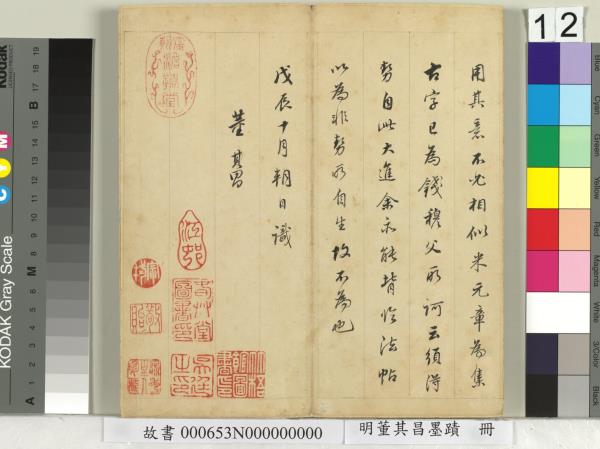 用其意不必相似米元章為集
古字已為錢穆父所訶云須得
勢自此大進余亦能背臨法帖
以為非勢所自生故不為也
戊辰十月朔日識
董其昌
12
Kodak
KODAK Gray Scale
C Y M
A 1 2 3 4 5 6 M 8 9 10 11 12 13 14 15 B 17 18 19
Blue
Cyan
Green
Yellow
Red
Magenta
White
3/Color
Black
故書 000653N000000000
明董其昌墨蹟 冊